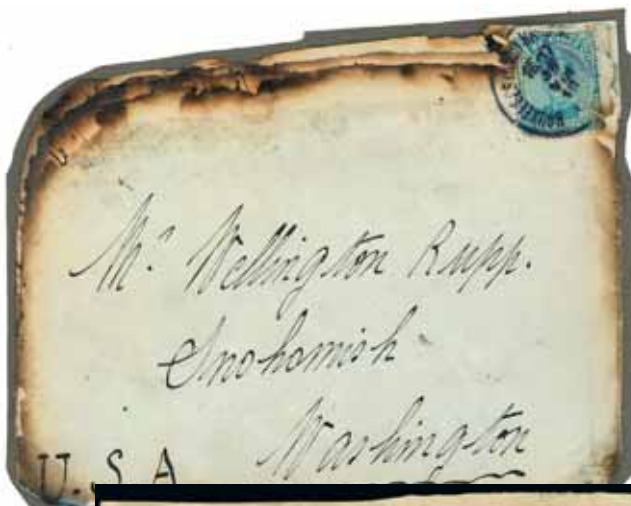 BRUXELLES
Mr. Wellington Rupp.
Snohomish
Washington
U.S.A